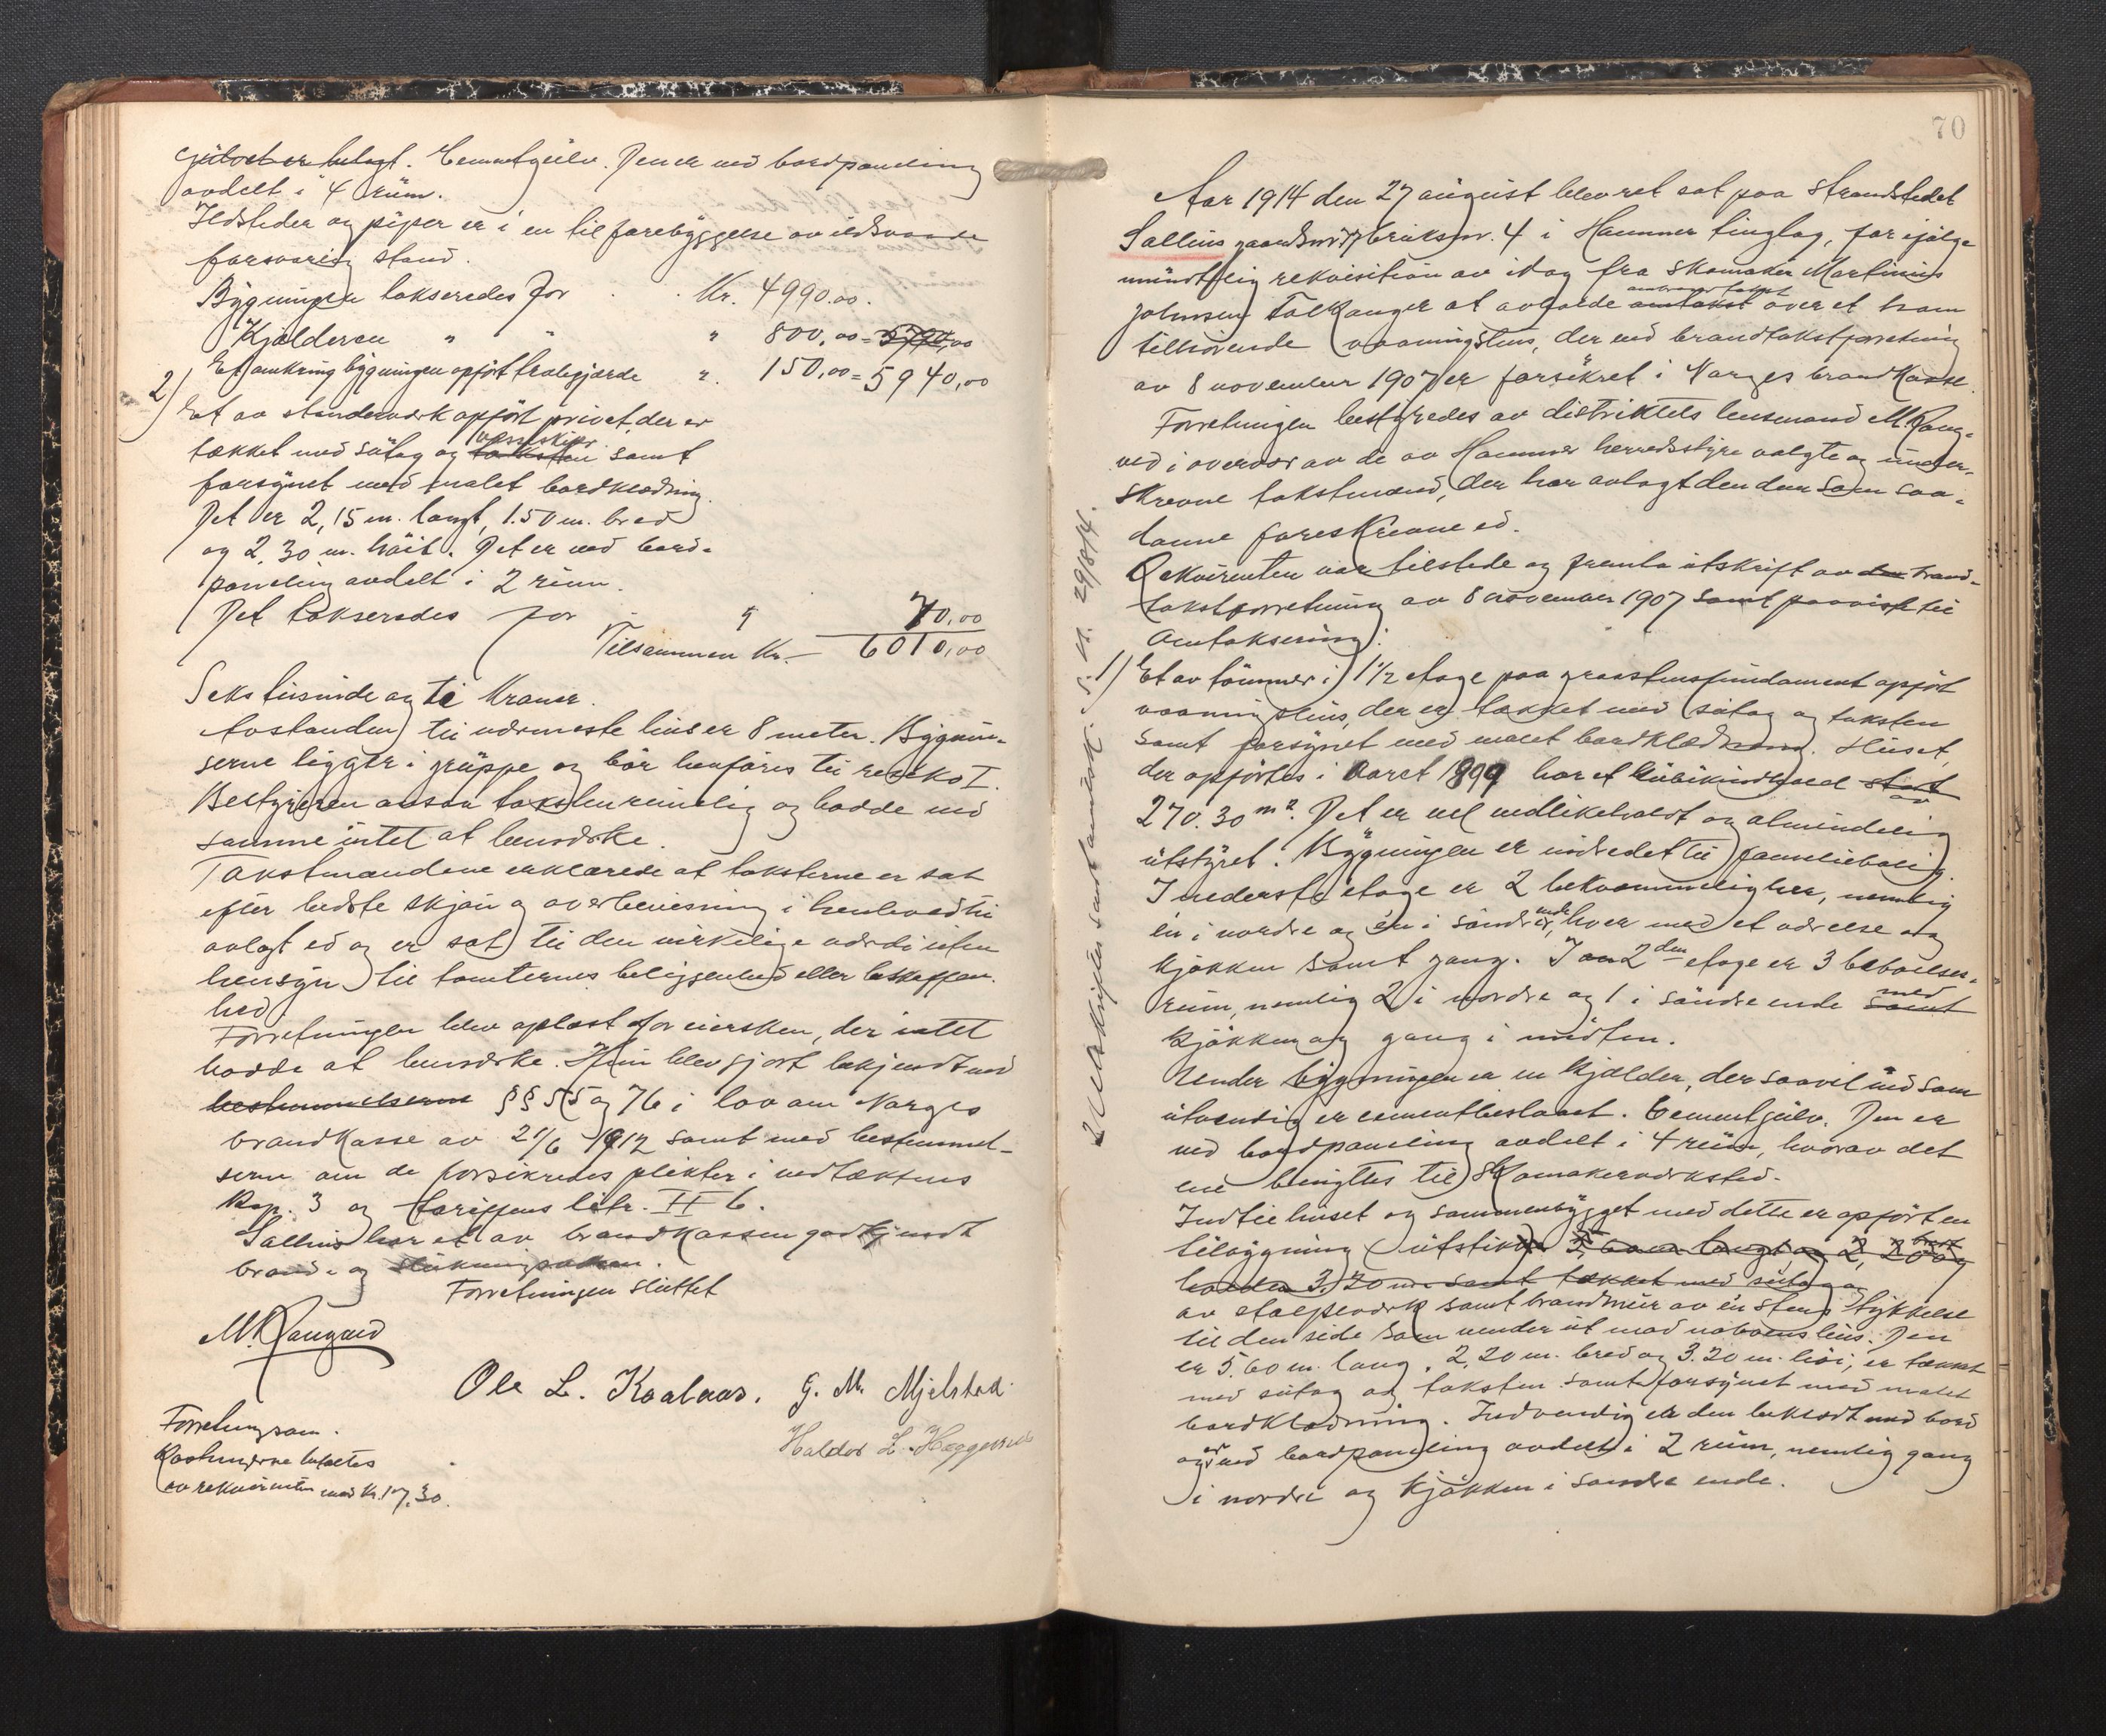 Gulvet er belagt. Cementgulv. Den er med bordpaneling
avdelt i 4 rüm.
Ildsteder og piper er i en til forebyggelse av ildsvaade
forsvarlig stand.
Bygningen takseredes for Kr. 4990.00.
Kjælderen " " " 800,00 = 5790,00
Et omkring bygningen opført stakegjærde ". 150,00 = 5940,00
2) Et av stenderverk opført privet, der er
tækket med sutag og taksten væneskifer samt
forsynet med malet bordklædning.
Det er 2,15 m. langt, 1.50 m. bred
og 2,30 m. høit. Det er med bord-
paneling avdelt i 2 rüm.
Det takseredes for " 70,00
Tilsammen Kr. 6010,00
Seks tusinde og ti Kroner.
Avstanden til nærmeste hus er 8 meter. Bygnin-
gerne ligger i gruppe og bør henføres til resiko I.
Bestyreren ansaa taksten rimelig og hadde ved
samme intet at bemerke.
Takstmændene erklærede at taksterne er sat
efter bedste skjøn og overbevisning i henhold til
avlagt ed og er sat til den virkelige værdi uten
hensyn til tomternes beliggenhed eller beskaffen-
hed.
Forretningen blev oplæst for eiersken, der intet
hadde at bemerke. Hun blev gjort bekjendt med
bestemmelserne §§ 55 og 76 i lov om Norges
brandkasse av 21/6 1912 samt med bestemmel-
serne om de forsikredes plikter i vedtektens
Kap. 3 og tariffens litr. II 6.
Salhus har et av brandkassen godkjendt
brand- og slukningsvæsen.
Forretningen sluttet
M. Rangved
Ole L. Kaalaas. G. M. Mjelstad.
Haldor L. Haggernæs
Forretningsom-
kostningerne betaltes
av rekvirenten med Kr. 17,30.
70
Aar 1914 den 27 august blev ret sat paa Strandstedet
Salhus gaardsnr 17 bruksnr. 4 i Hammer tinglag, for ifølge
mundtlig rekvisition av idag fra skomaker Martinius
Johnsen Falkanger at avholde omtakst over et ham
tilhørende vaaningshus, der ved brandtakstforretning
av 8 november 1907 er forsikret i Norges brandkasse.
Forretningen bestyredes av distriktets lensmand M. Rang-
ved i overvær av de av Hammer herredsstyre valgte og under-
skrevne takstmænd, der har avlagt den dem som saa-
danne foreskrevne ed.
Rekvirenten var tilstede og fremla utskrift av den brand-
takstforretning av 8 november 1907 samt paaviste til
omtaksering:
1) Et av tømmer i 1 1/2 etage paa graastensfundament opført
vaaningshus, der er tækket med sutag og taksten
samt forsynet med malet bordklædning. Huset,
der opførtes i aaret 1899 har et kubikindhold stort av
270.30 m². Det er vel vedlikeholdt og almindelig
utstyret. Bygningen er indredet til familiebolig.
I nederste etage er 2 bekvæmmeligheter, nemlig
én i nordre og én i søndre ende, hver med et værelse og
kjøkken samt gang. I 2den etage er 3 beboelses-
rüm, nemlig 2 i nordre og 1 i søndre ende samt med
kjøkken og gang i midten.
Under bygningen er en kjælder, der saavel ind som
utvendig er cementbeslaaet. Cementgulv. Den er
ved bordpaneling avdelt i 4 rüm, hvorav det
ene benyttes til skomakerverksted.
Ind til huset og sammenbygget med dette er opført en
tilbygning (utstikker 5,60 m langt og 2,20 bredt og
høiden 3.20 m. samt tækket med sutag og
av stolpeverk samt brandmur av én stens tykkelse
til den side som vender ut mod naboens hus. Den
er 5.60 m. lang, 2,20 m. bred og 3.20 m. høi, er tækket
med sutag og taksten samt forsynet med malet
bordklædning. Indvendig er den beklædt med bord
og er ved bordpaneling avdelt i 2 rüm, nemlig gang
i nordre og kjøkken i søndre ende.
2 utskrifter samtømmisk. s. d. 29/8/14.